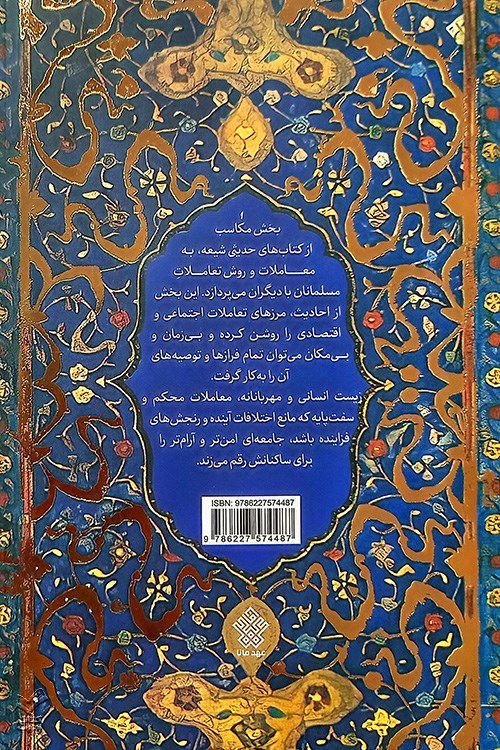 بخش مکاسب
از کتاب‌های حدیثی شیعه، به
معاملات و روش تعاملات
مسلمانان با دیگران می‌پردازد. این بخش
از احادیث، مرزهای تعاملات اجتماعی و
اقتصادی را روشن کرده و بی‌زمان و
بی‌مکان می‌توان تمام فرازها و توصیه‌های
آن را به‌کار گرفت.
زیست انسانی و مهربانانه، معاملات محکم و
سفت‌پایه که مانع اختلافات آینده و رنجش‌های
فزاینده باشد، جامعه‌ای امن‌تر و آرام‌تر را
برای ساکنانش رقم می‌زند.
ISBN: 9786227574487
9 786227 574487
عهد مانا